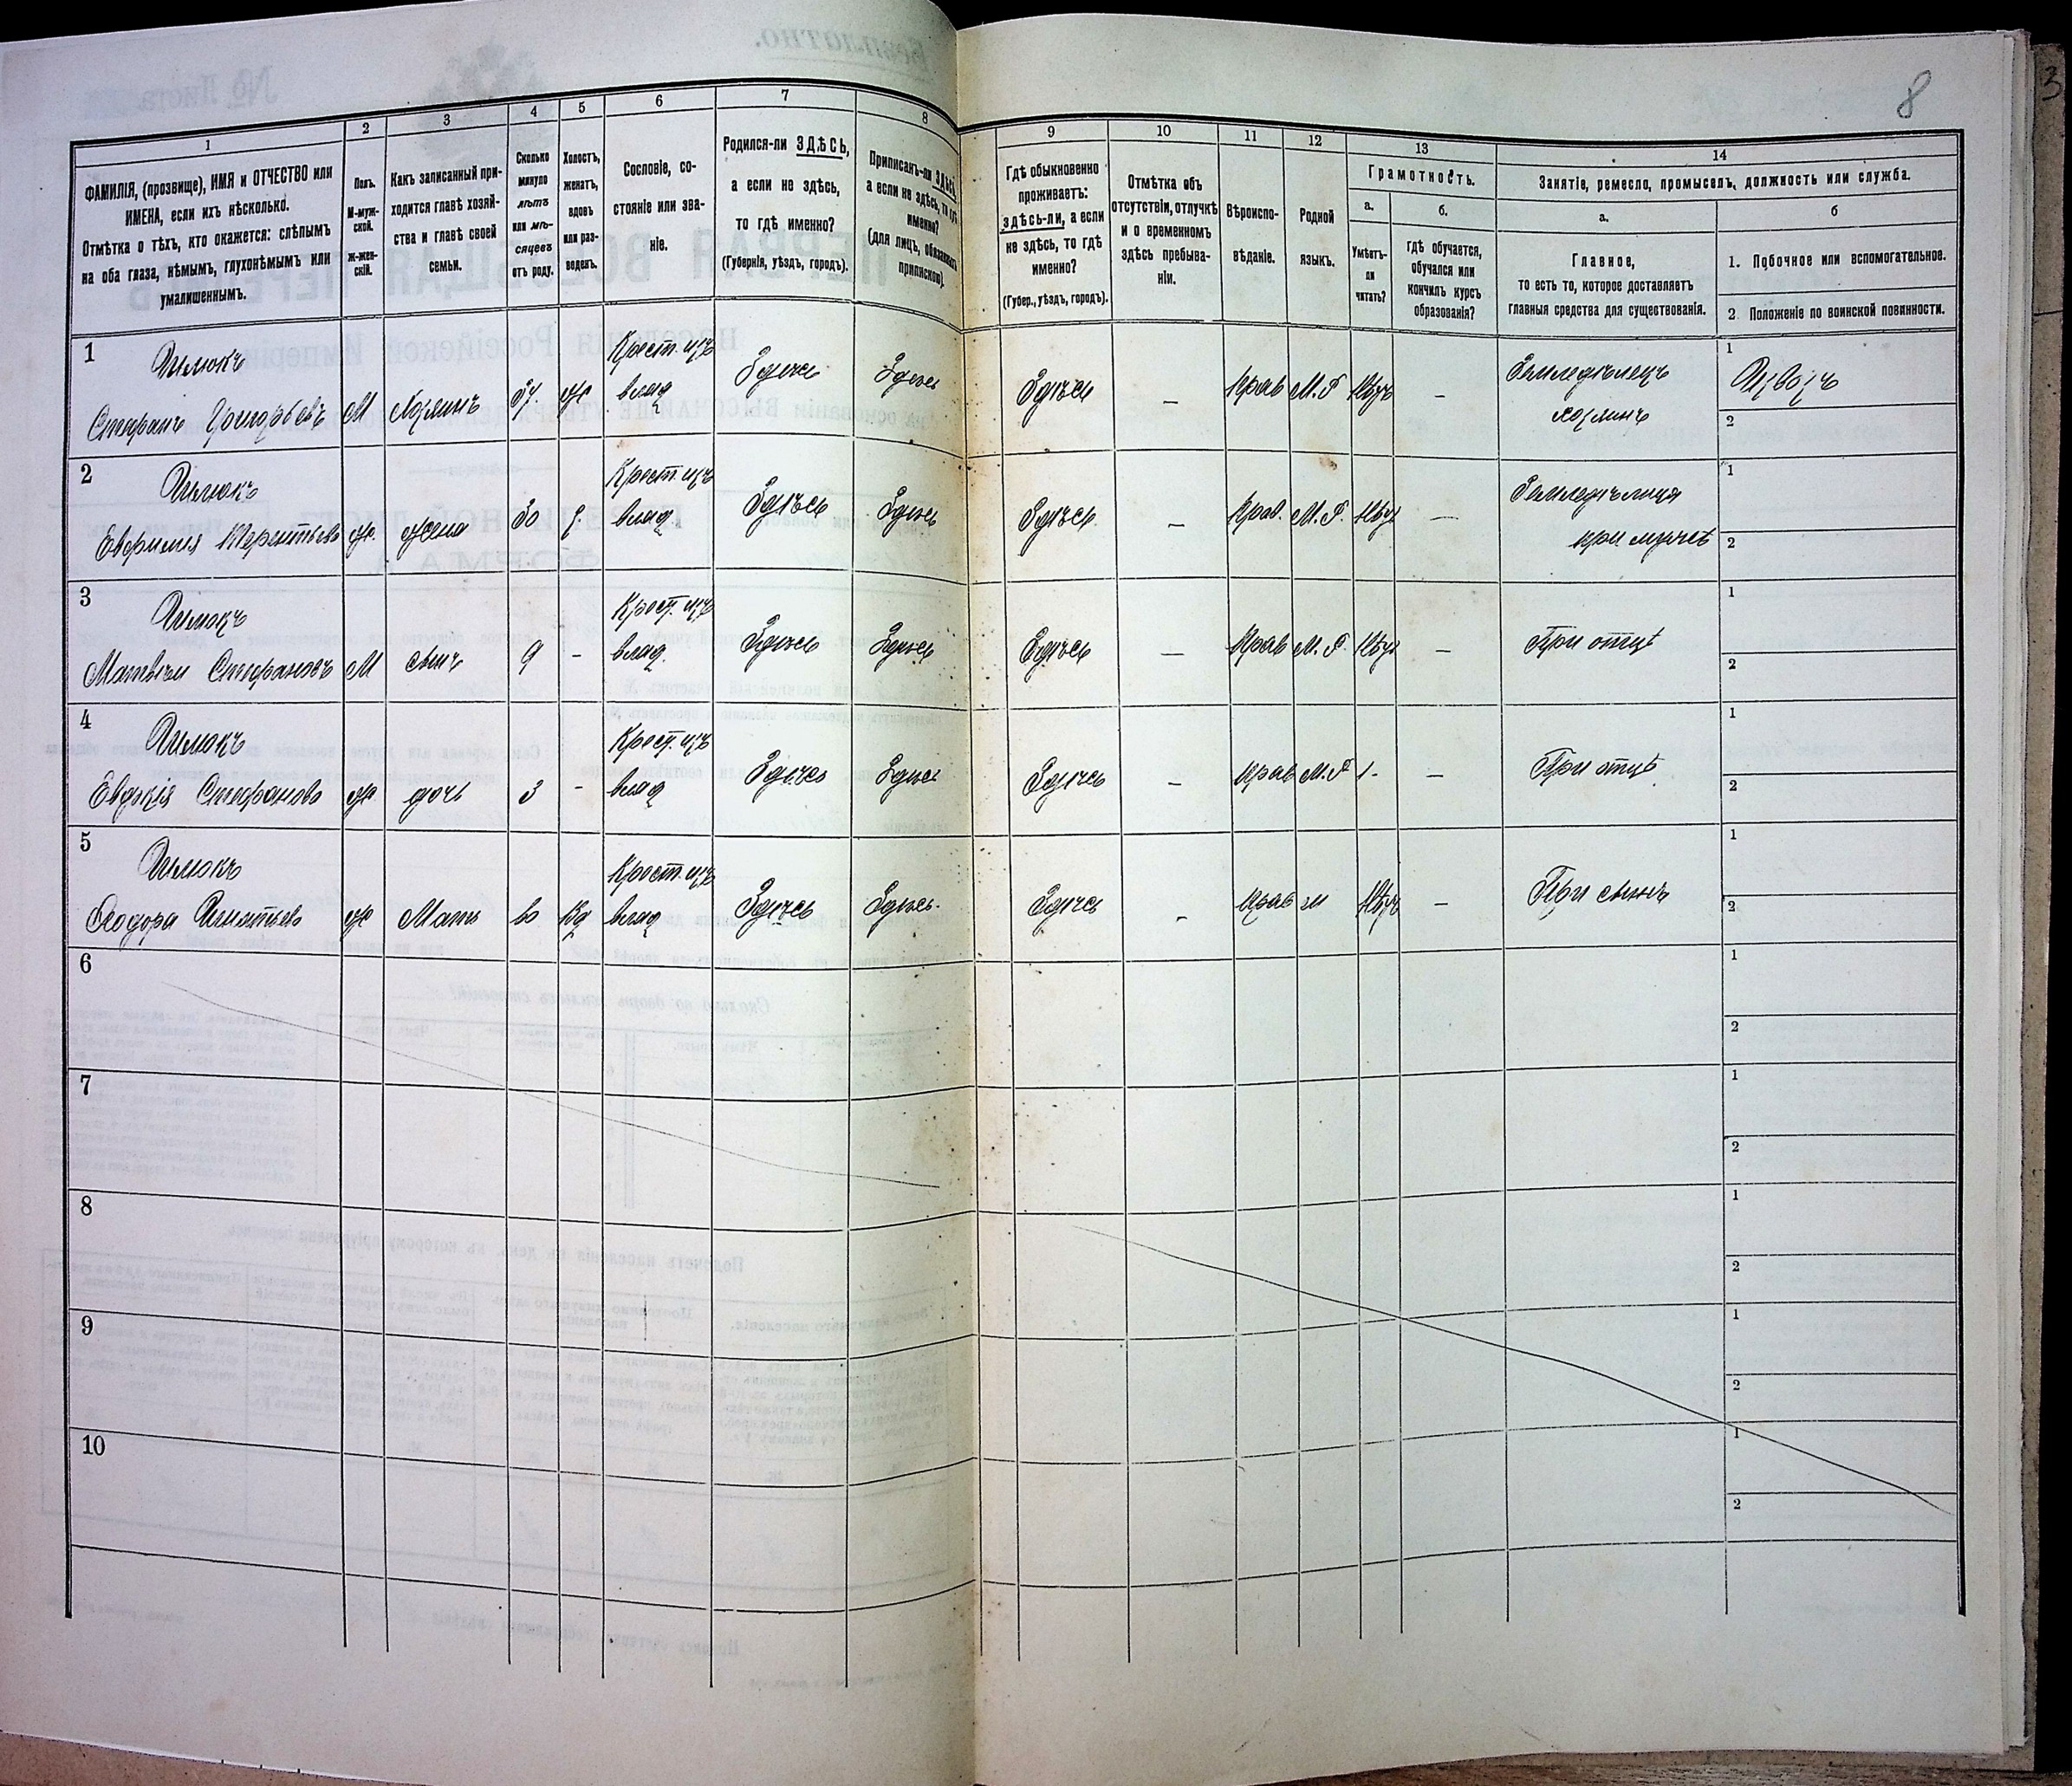 8
3
1 2 3 4 5 6 7 8 9 10 11 12 13 14
ФАМИЛІЯ, (прозвище), ИМЯ и ОТЧЕСТВО или
ИМЕНА, если ихъ нѣсколько.
Отмѣтка о тѣхъ, кто окажется: слѣпымъ
на оба глаза, нѣмымъ, глухонѣмымъ или
умалишеннымъ.
Полъ.
М-муж-
ской.
ж-жен-
скій.
Какъ записанный при-
ходится главѣ хозяй-
ства и главѣ своей
семьи.
Сколько
минуло
лѣтъ
или мѣ-
сяцевъ
отъ роду.
Холостъ,
женатъ,
вдовъ
или раз-
веденъ.
Сословіе, со-
стояніе или зва-
ніе.
Родился-ли ЗДѢСЬ,
а если не здѣсь,
то гдѣ именно?
(Губернія, уѣздъ, городъ).
Приписанъ-ли ЗДѢСЬ,
а если не здѣсь, то гдѣ
именно?
(для лицъ, обязанныхъ
припискою).
Гдѣ обыкновенно
проживаетъ:
здѣсь-ли, а если
не здѣсь, то гдѣ
именно?
(Губер., уѣздъ, городъ).
Отмѣтка объ
отсутствіи, отлучкѣ
и о временномъ
здѣсь пребыва-
ніи.
Вѣроиспо-
вѣданіе.
Родной
языкъ.
Грамотность.
а.
Умѣетъ-
ли
читать?
б.
гдѣ обучается,
обучался или
кончилъ курсъ
образованія?
Занятіе, ремесло, промыселъ, должность или служба.
а.
Главное,
то есть то, которое доставляетъ
главныя средства для существованія.
б
1. Побочное или вспомогательное.
2 Положеніе по воинской повинности.
1
Крест. изъ
Здѣсь Здѣсь Здѣсь — Прав М.Р Нѣтъ — Земледѣлецъ 1 Извозъ
Стефанъ Григорьевъ М Хозяинъ 37. ж влад хозяинъ 2
2
Крест. изъ
Здѣсь Здѣсь Здѣсь — Прав. М.Р. Нѣтъ — Земледѣлица 1
Евфимия Терентьева ж. жена 30 з. влад. при мужѣ 2
3
Крест. изъ
Матвѣй Стефановъ М сынъ 9 - влад. Здѣсь Здѣсь Здѣсь — Прав М.Р. Нѣтъ — При отцѣ 1
2
4
Крест. изъ
Евдокія Стефанова ж дочь 3 - влад Здѣсь Здѣсь Здѣсь — Прав М.Р — При отцѣ 1
2
5
Крест. изъ
Ѳеодора Игнатьева ж Мать 60 Вд влад Здѣсь Здѣсь. Здѣсь - Прав м Нѣтъ — При сынѣ 1
2
6 1
2
7 1
2
8 1
2
9 1
2
10 1
2